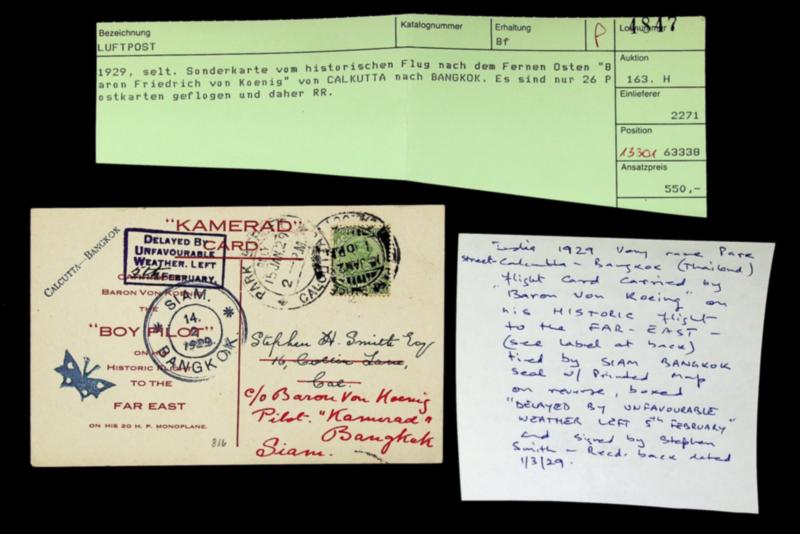 Bezeichnung
LUFTPOST
Katalognummer
Erhaltung
Bf
P
Losnummer
4847
1929, selt. Sonderkarte vom historischen Flug nach dem Fernen Osten "B
aron Friedrich von Koenig" von CALKUTTA nach BANGKOK. Es sind nur 26 P
ostkarten geflogen und daher RR.
Auktion
163. H
Einlieferer
2271
Position
13301 63338
Ansatzpreis
550,-
CALCUTTA—BANGKOK
"KAMERAD"
CARD
DELAYED BY
UNFAVOURABLE
WEATHER. LEFT
5th FEBRUARY.
BARON VON KOENIG
THE
"BOY PILOT"
ON HIS
HISTORIC FLIGHT
TO THE
FAR EAST
ON HIS 20 H. P. MONOPLANE.
SIAM.
14.
2
1929.
BANGKOK
PARK
15 JAN 29
2 - P.M.
CALCUTTA
Stephen H. Smith Esq
16, Collin Lane,
Cal.
c/o Baron Von Koenig
Pilot. "Kamerad"
Bangkok
Siam.
816
India 1929 Very rare Park
street-Calcutta - Bangkok (Thailand)
flight Card carried by
"Baron Von Koeing" on
his HISTORIC flight
to the FAR-EAST-
(see label at back)
tied by SIAM BANGKOK
seal w/ Printed map
on reverse, boxed
"DELAYED BY UNFAVOURABLE
WEATHER LEFT 5th FEBRUARY"
and signed by Stephen
Smith - Recd. back dated
1/3/29.